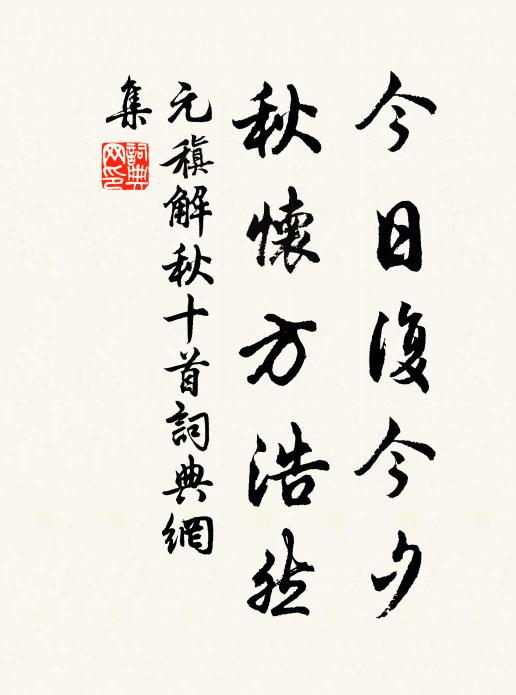 今日復今夕
秋懷方浩然
元稹解秋十首詞典網
集
詞典
网印